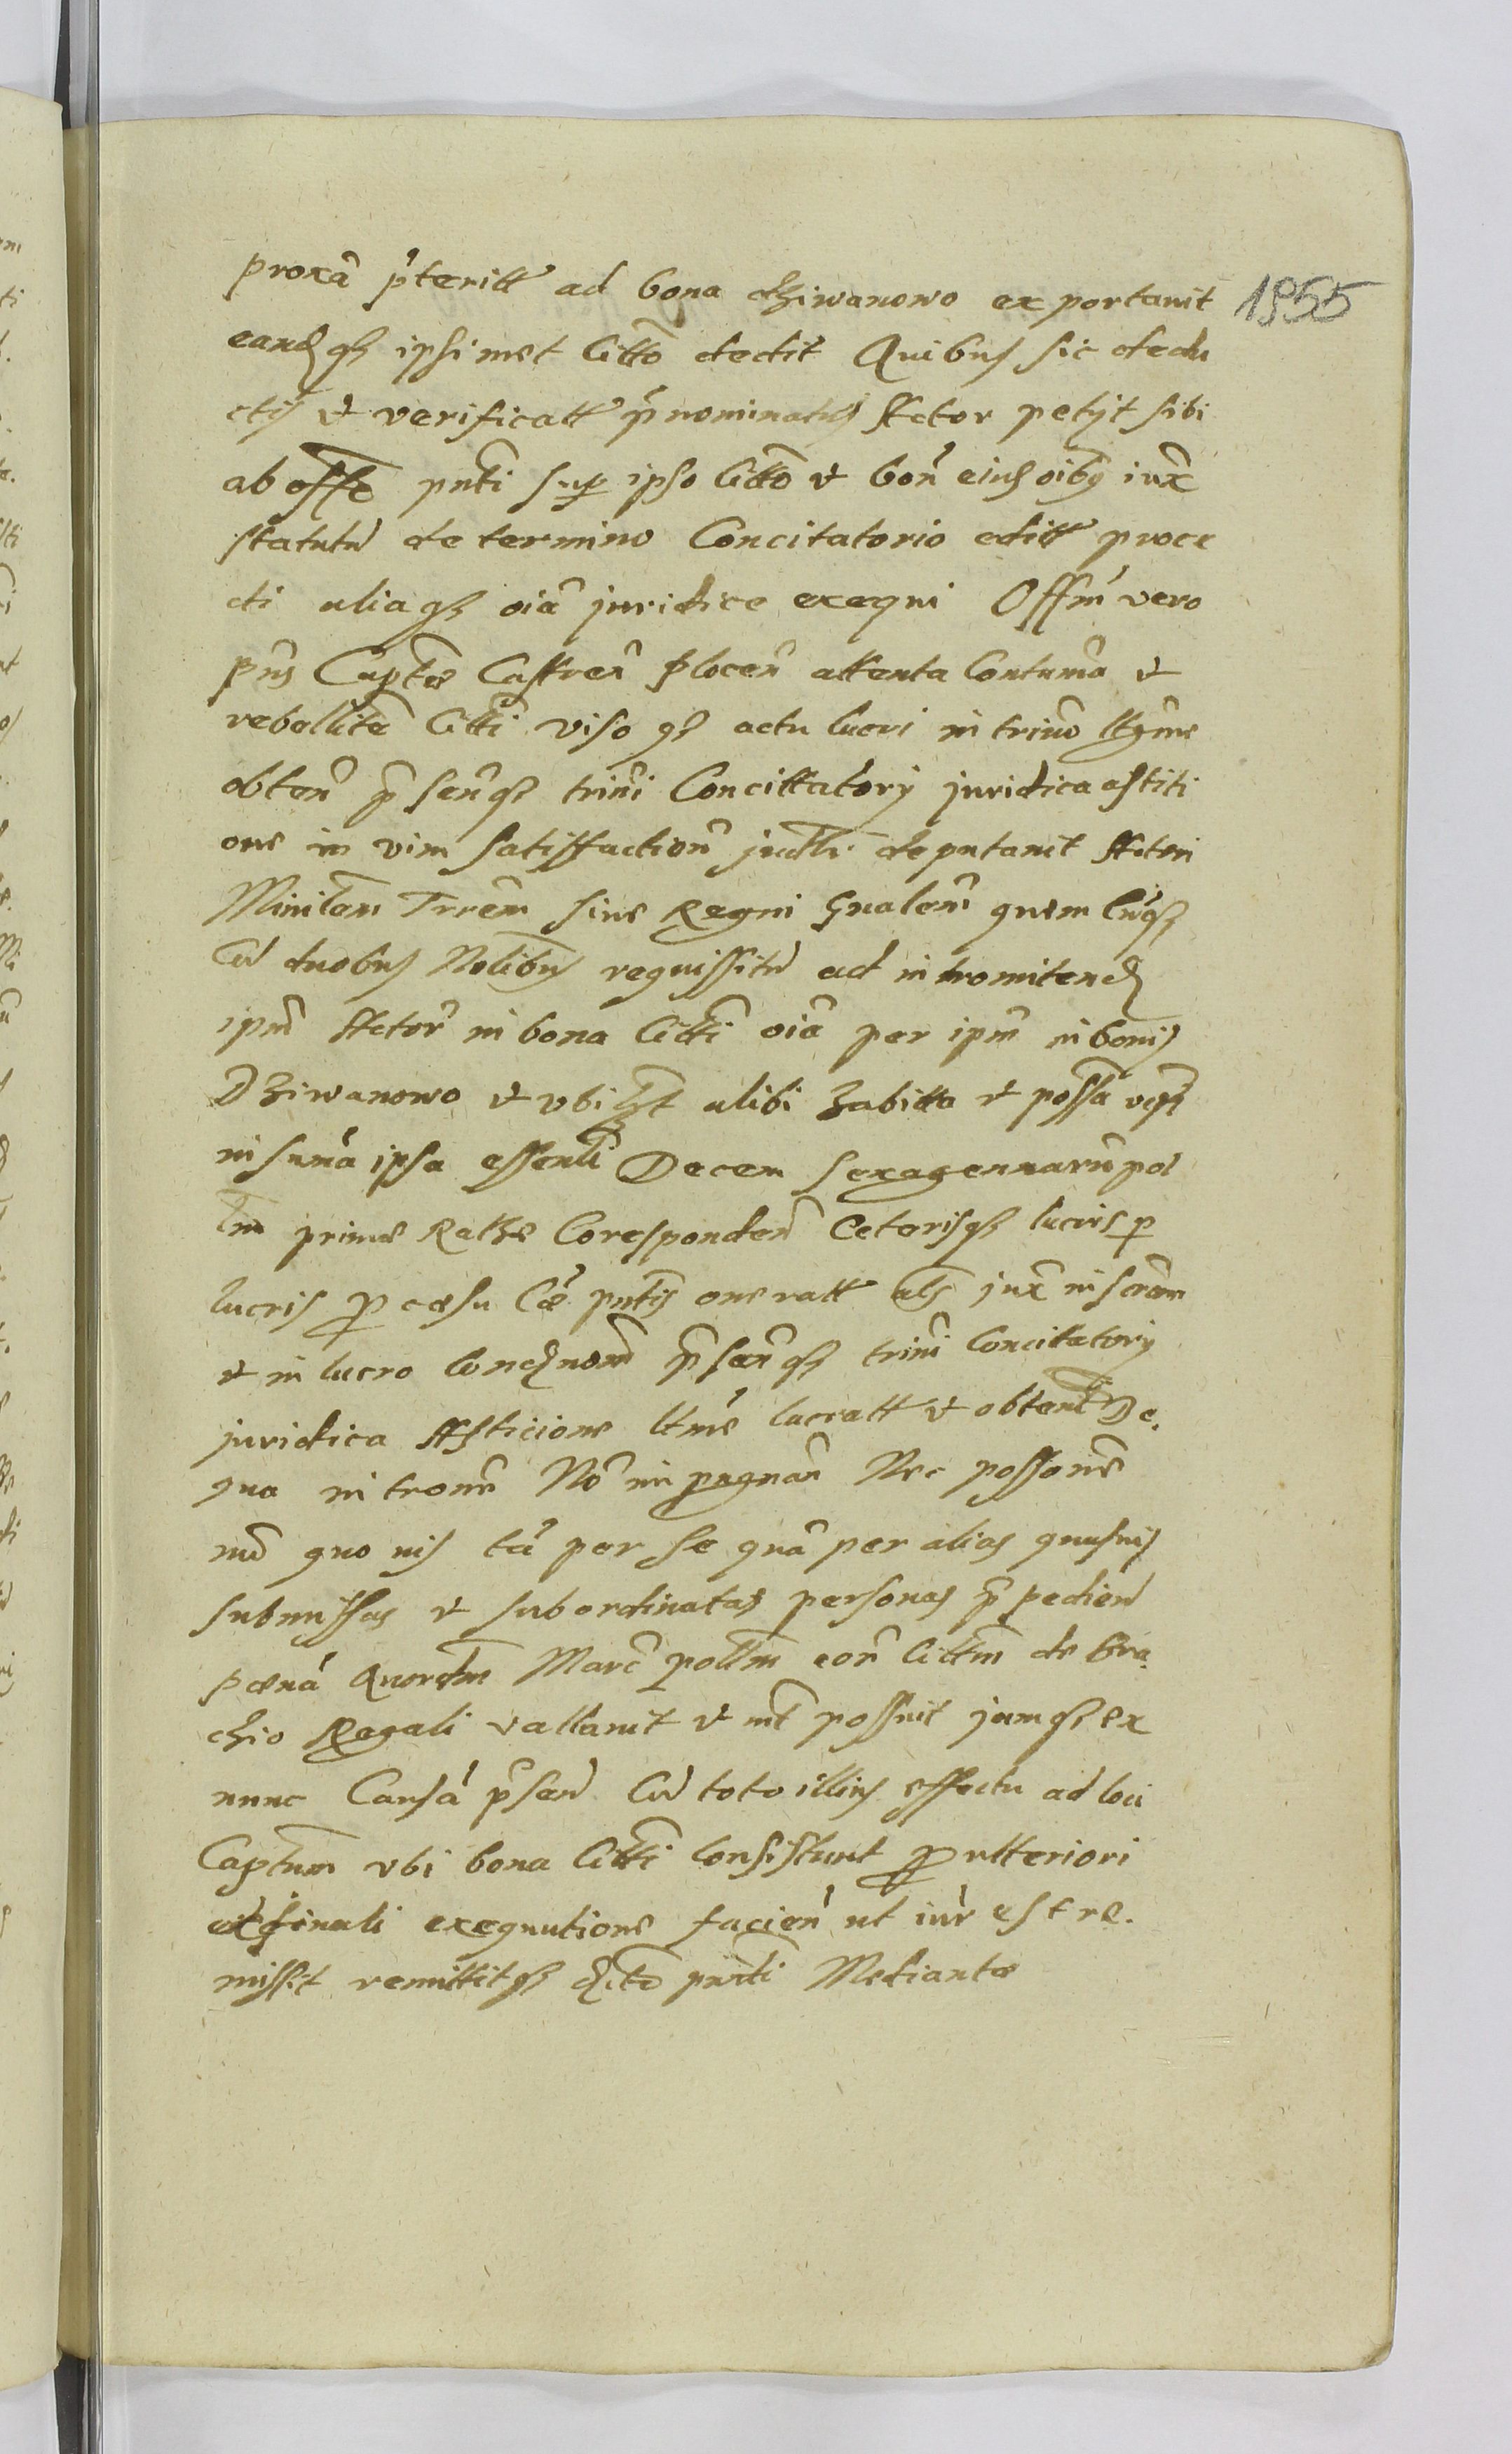 proxã p̃teritt ad bona dziwanowo exportauit 1955
eandqȝ ipsimet Citto dedit Quibus sic dedu
ctis et verificatt p̃nominatus Actor petyt sibi
ab offo pnti sup ipso Citto et bon eius oibȝ iux
statutu de termino Concitatorio editt proce
di aliaqȝ oia juridice exequi Offm vero
pns Captle Castren Plocen attenta Contuma et
rebellite Citti visoqȝ actu lucri in trino
obten p̃senqȝ trini Concittatory juridica astiti
one in vim satisffaction judtr deputauit Actori
Ministem Trrem siue Regni Gnalem quem
Cu duobus Nolibus requissitu ad intromitend
ipm Actor in bona Citti oia per ipm in bonis
Dziwanowo et vbi alibi habitta et possa
in suma ipsa essenti Decem sexagennaru pol
prime Rathe Corespondn Ceterisqȝ lucris p
lucris p casu Cae pntis oneratt als jux inscrom
et in lucro p̃senqȝ trini Concitatory
juridica Asticione ltme lucratt et obtent De
qua introne No inpugnan Nec possone
mo quo uis tã per se quã per alias quasuis
submissas et subordinatas personas p̃pedien
pænã Quordm Marc poltm eor Cittm de bra
chio Regali vallauit et int possuit jamqȝ ex
nunc Causã p̃sen Cu toto illius effectu ad loci
Captum vbi bona Citti Consistunt p ulteriori
et finali exequutione facien ut iur est re
missit remittitqȝ dcto pnti Mediante